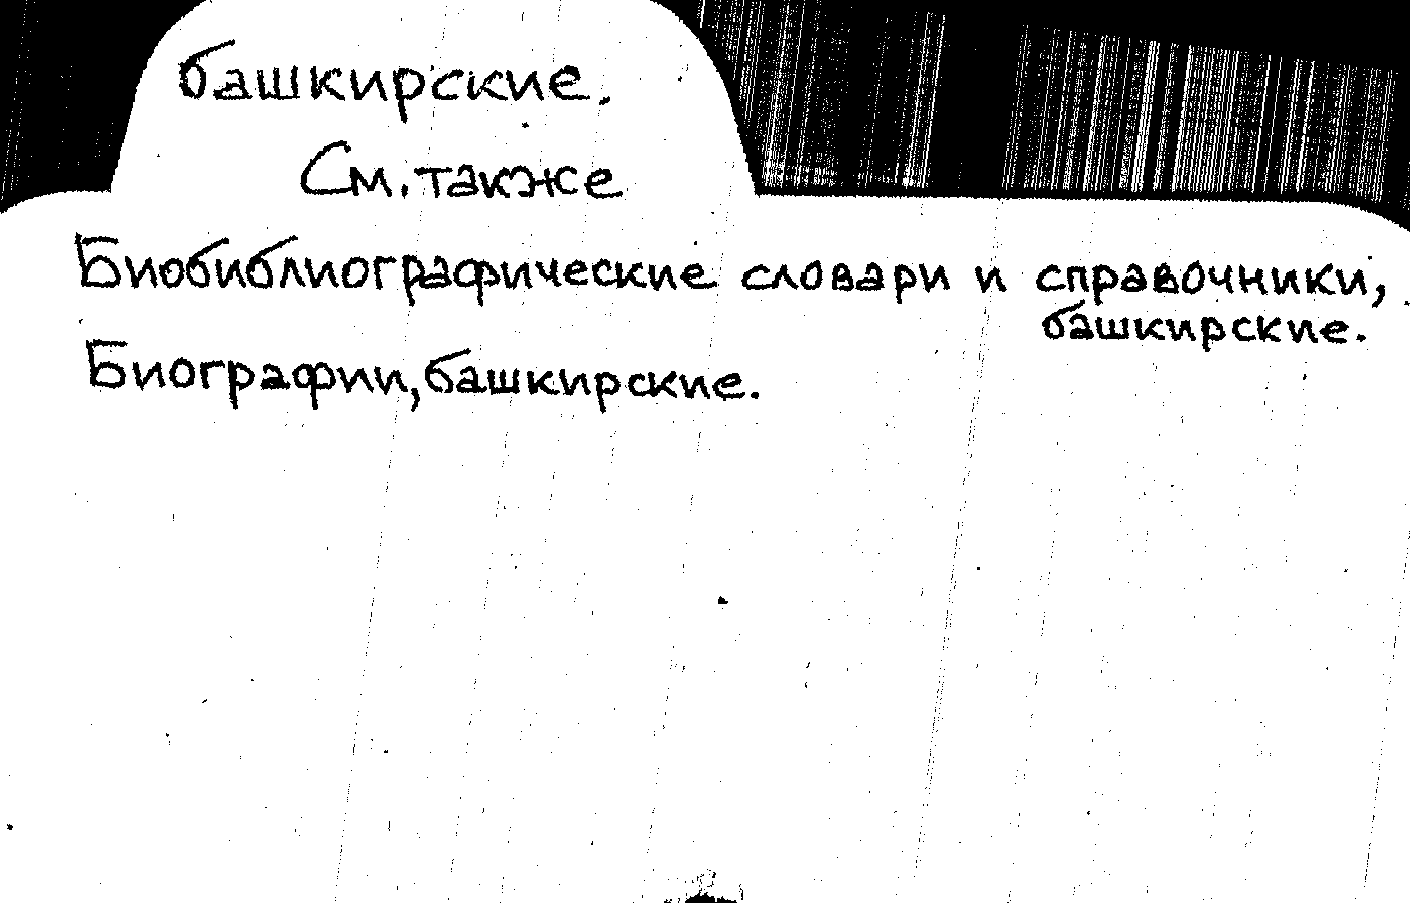 башкирские.
См. также
Биобиблиографические словари и справочники,
башкирские.
Биографии, башкирские.